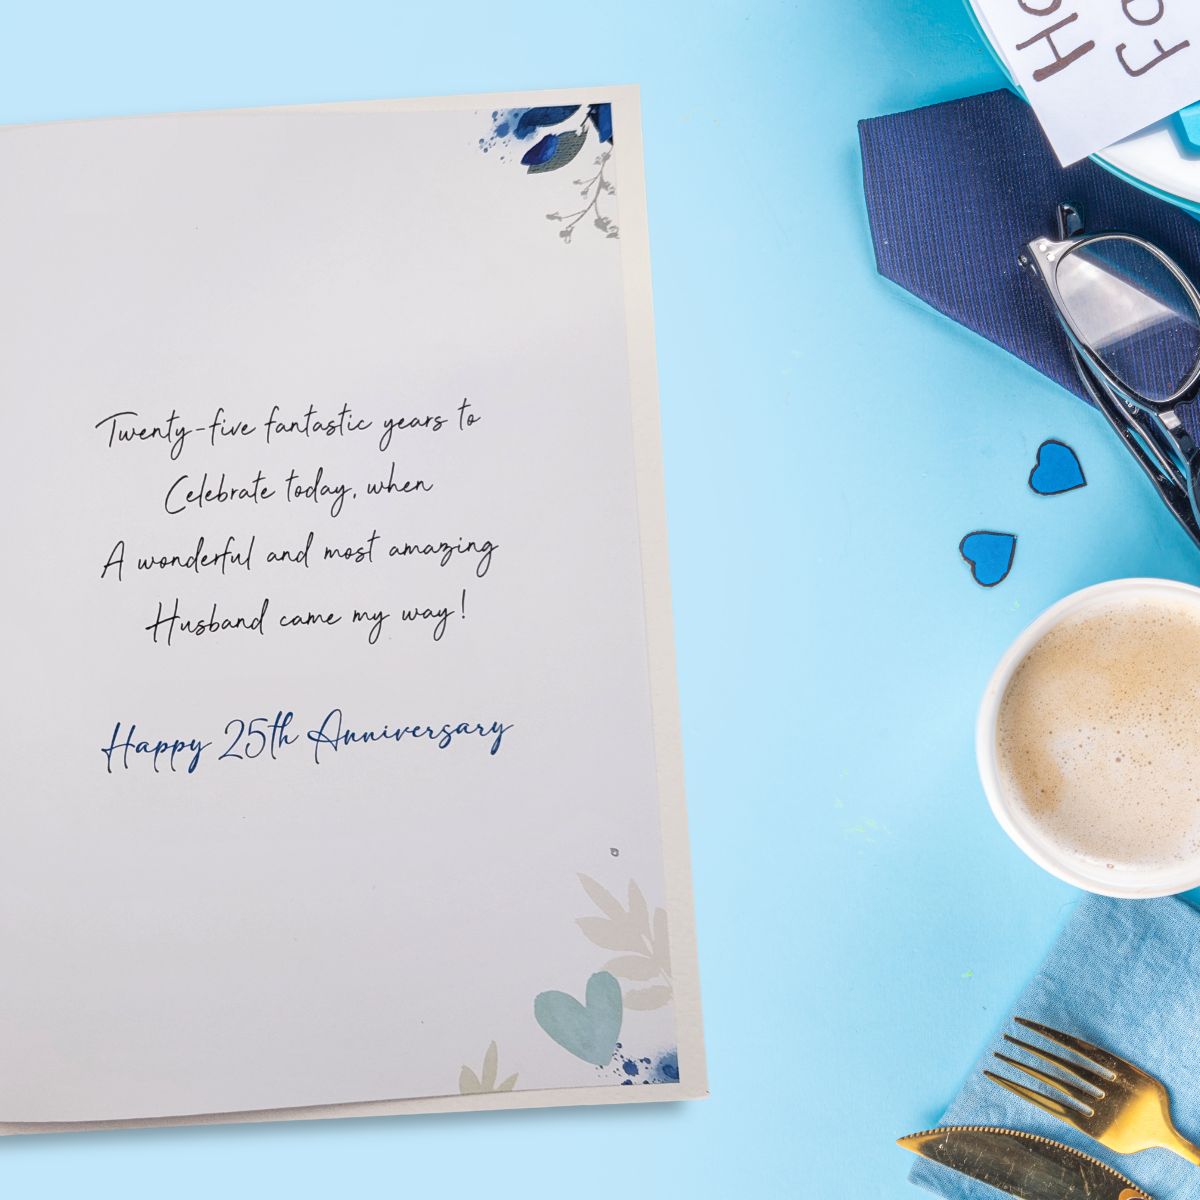 Twenty-five fantastic years to
Celebrate today, when
A wonderful and most amazing
Husband came my way!
Happy 25th Anniversary